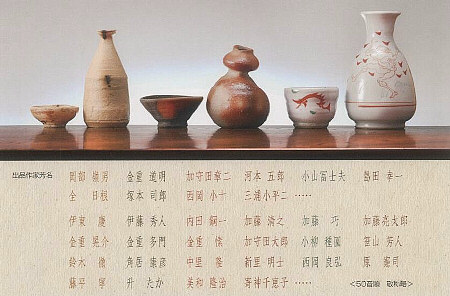 出品作家芳名
岡部 嶺男 金重 道明 加守田章二 河本 五郎 小山冨士夫 島田 幸一
全 日根 塚本 司郎 西岡 小十 三浦小平二 ……
伊東 慶 伊藤 秀人 内田 鋼一 加藤 清之 加藤 巧 加藤亮太郎
金重 晃介 金重 多門 金重 愫 加守田太郎 小柳 種園 笹山 芳人
鈴木 徹 角居 康彦 中里 隆 新里 明士 西岡 良弘 原 憲司
藤平 寧 升 たか 美和 隆治 若神千恵子 ……
<50音順 敬称略>